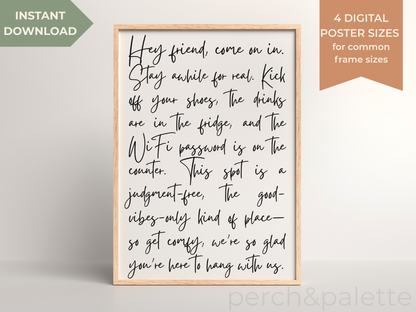 INSTANT
DOWNLOAD
4 DIGITAL
POSTER SIZES
for common
frame sizes
Hey friend, come on in.
Stay awhile for real. Kick
off your shoes, the drinks
are in the fridge, and the
WiFi password is on the
counter. This spot is a
judgment-free, the good-
vibes-only kind of place—
so get comfy, we're so glad
you're here to hang with us.
perch&palette